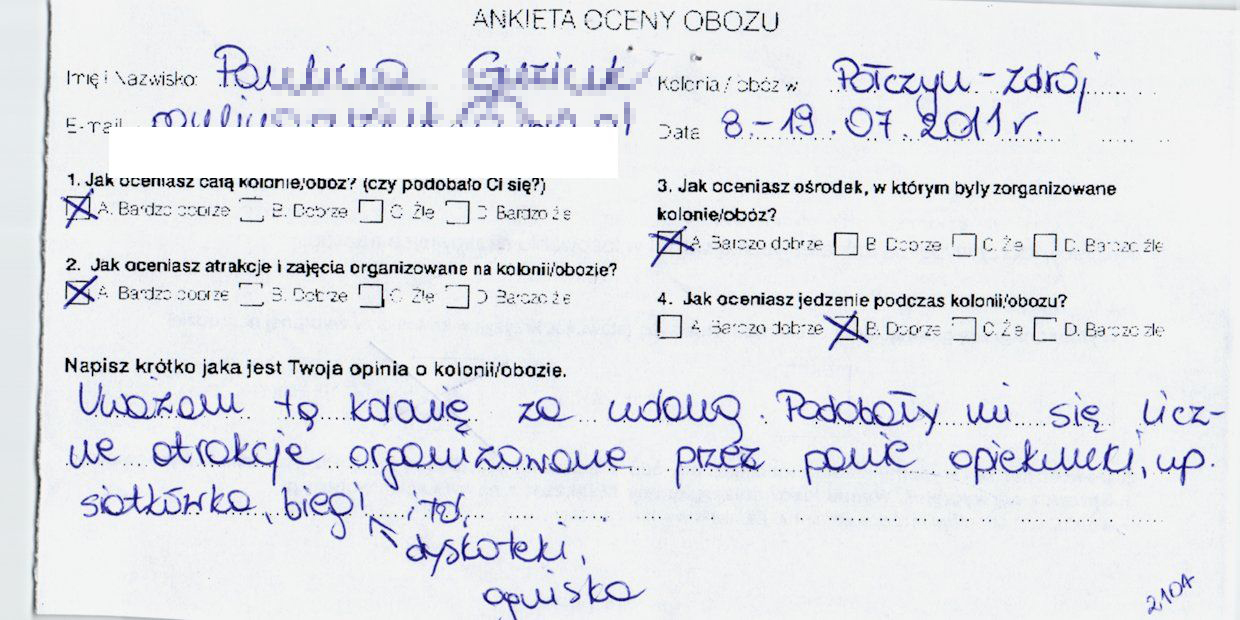 ANKIETA OCENY OBOZU
Imię i Nazwisko: Kolonia / obóz w Połczyn-Zdrój
E-mail Data 8-19.07.2011r.
1. Jak oceniasz całą kolonie/obóz? (czy podobało Ci się?)
A. Bardzo dobrze B. Dobrze C. Źle D. Bardzo źle
2. Jak oceniasz atrakcje i zajęcia organizowane na kolonii/obozie?
A. Bardzo dobrze B. Dobrze C. Źle D. Bardzo źle
3. Jak oceniasz ośrodek, w którym były zorganizowane
kolonie/obóz?
A. Bardzo dobrze B. Dobrze C. Źle D. Bardzo źle
4. Jak oceniasz jedzenie podczas kolonii/obozu?
A. Bardzo dobrze B. Dobrze C. Źle D. Bardzo źle
Napisz krótko jaka jest Twoja opinia o kolonii/obozie.
Uważam tą kolonię za udaną. Podobały mi się licz-
ne atrakcje organizowane przez panie opiekunki, np.
siatkówka, biegi itd.
dyskoteki,
ogniska
2104